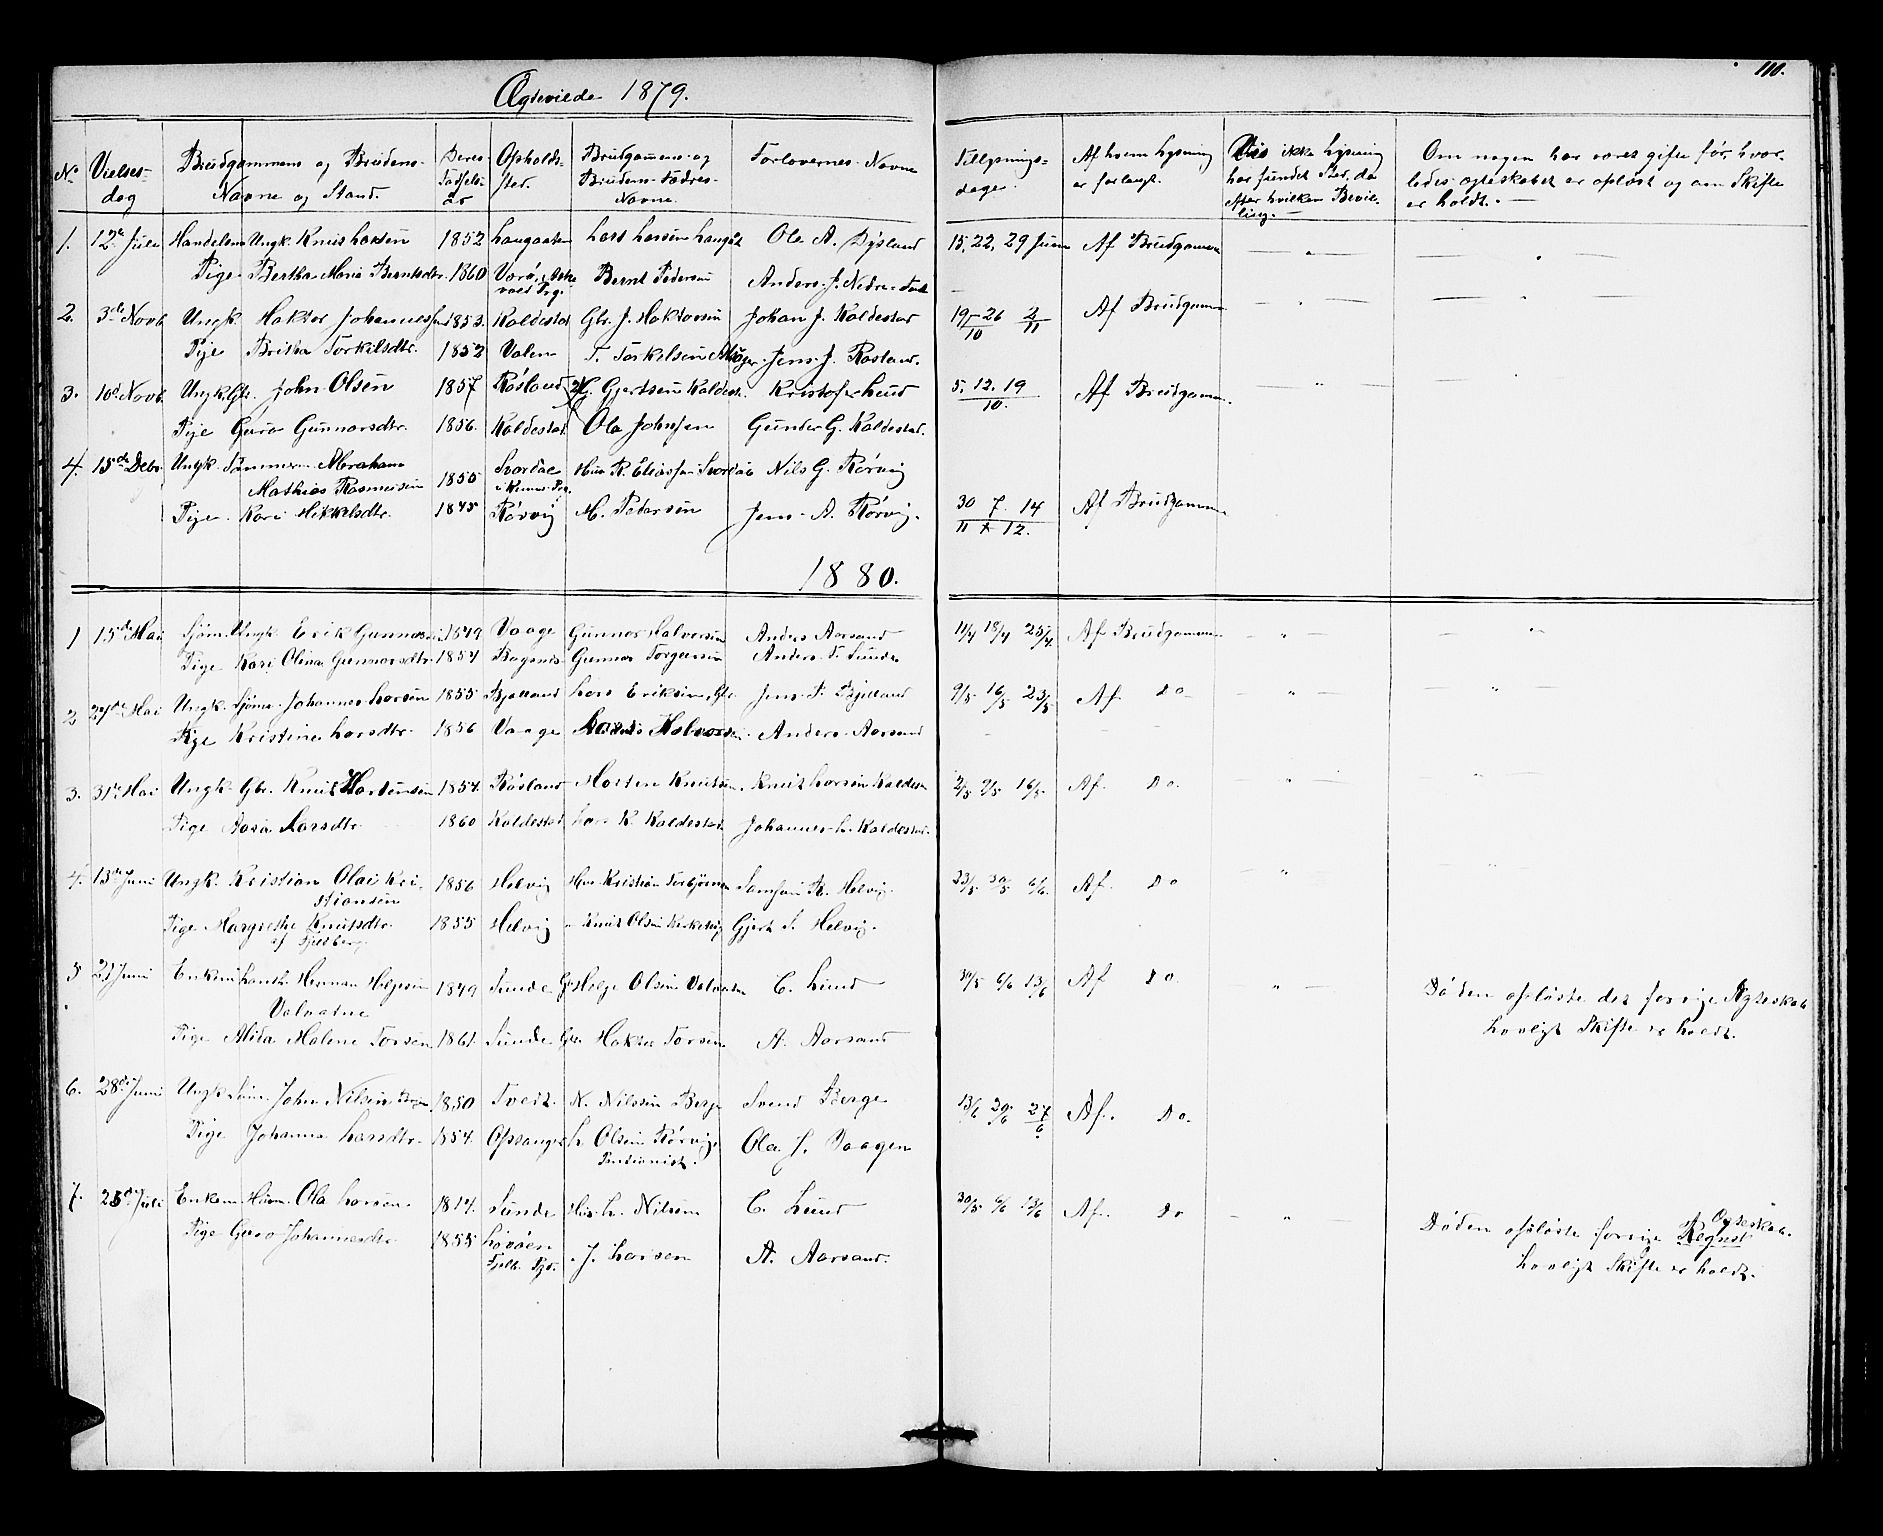 110.
Ægteviede 1879.
No Vielses- dag Brudgommens og Brudens Navne og Stand. Deres Fødsels- aar Opholds- sted. Brudgommens og Brudens Fædres Navne. Forlovernes Navne Tillysnings- dage. Af hvem Lysning er forlangt. Hvis ikke Lysning har fundet Sted, da efter hvilken Bevil- ling. — Om nogen har været gift før, hvor- ledes ægteskabet er opløst og om Skifte er holdt. —
1. 12te Julii Ungk. Knut Larsen 1852 Lars Larsen Ola A. Dysland 15. 22. 29 Juni Af Brudgommen
Pige Bertha Maria Berntsdtr. 1860 Bernt Pedersen Anders J. Nedre
2. 3de Novb. Ungk. Haktor Johannesen 1853. Kaldestad Gbr. J. Haktorsen Johan J. Kaldestad 19 26 2 Af Brudgommen
10 11
Pige Britha Torkilsdtr. 1852 Valen T. Torkelsen Jens J. Røsland.
3. 10d. Novb. Ungk. Gbr. John Olsen 1857 Røsland G. Gjertsen Kaldest. Kristofer Lund 5. 12. 19 Af Brudgomm.
10.
Pige Guro Gunnarsdtr. 1856. Kaldestad Ola Johnsen Gunder G. Kaldestad.
4. 15de Debr. Ungk. Abraham Mathias Rasmussen 1850 R. Eliassen Nils G. Rørvig
Pige Kari Mikkelsdtr. 1845 Rørvig M. Pedersen Jens A. Rørvig. 30 7. 14 Af Brudgommen
11 12.
1880.
1 15de Mai Sjøm. Ungk. Erik Gunnarsen 1849 Vaage Gunnar Halvorsen Anders Aarsand 11/4 18/4 25/4. Af Brudgommen
Pige Kari Olina Gunnarsdtr. 1854 Gunnar Torgersen Anders T. Sunde
2 27de Mai Ungk. Sjøm. Johannes Larsen 1855 Bjelland Lars Eriksen, Gbr. Jens T. Bjelland 9/5 16/5 23/5. Af Do
Pige Kristine Larsdtr. 1856 Vaage Halvorsen Anders Aarsand
3. 31te Mai Ungk. Gbr. Knut Mortensen 1854. Røsland Morten Knutsen Knut Larsen Kaldestad 2/5 9/5 16/5. Af. Do.
Pige Aasa Larsdtr. 1860 Kaldestad. Lars K. Kaldestad. Johannes L. Kaldestad.
4. 13de Juni Ungk. Kristian Olai Kri- stiansen 1856 Helvig Hus. Kristian Torbjørnsen Samson K. Helvig. 23/5 30/5 6/6. Af. Do
Pige Margrethe Knutsdtr. af Fjelberg 1855 Helvig Knut Olsen Gjert S. Helvig.
5 21 Juni Enkem. Herman Helgesen Valvatne 1849 Sunde Gbr. Helge Olsen Valvatne C. Lund 30/5 6/6 13/6 Af Do. Døden opløste det forrige Ægteskab Lovligt Skifte er holdt.
Pige Alida Malene Torsen 1861. Sunde Gbr. Haktor Torsen A. Aarsand
6. 28de Juni Ungk. John Nilsen 1850 Tveit. N. Nilssen Berge Svend Berge 13/6 20/6 27/6. Af. Do.
Pige Johanna Larsdtr. 1854. Opsanger L. Olsen Rørvig. Pensionist. Ola J. Saagen
7. 25de Juli Enkem. Husm. Ola Larsen. 1814. Sunde Hus. L. Nilsen C. Lund 30/5 6/6 13/6 Af. Do Døden opløste forrige Ægteskab. Lovligt Skifte er holdt.
Pige Guro Johannesdtr. 1855 Løvøen Fjelb. Pgd. J. Larsen A. Aarsand.